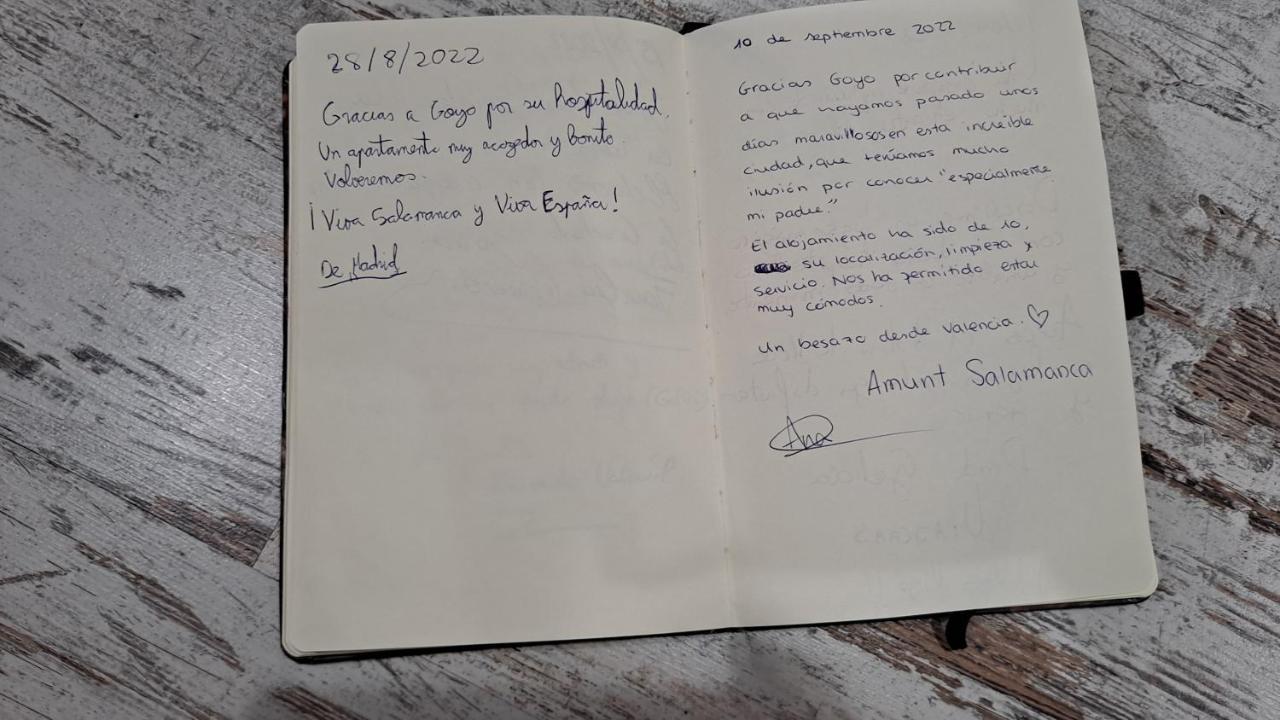 28/8/2022
Gracias a Goyo por su Hospitalidad.
Un apartamento muy acogedor y Bonito.
Volveremos.
¡Viva Salamanca y Viva España!
De Madrid
10 de septiembre 2022
Gracias Goyo por contribuir
a que hayamos pasado unos
días maravillosos en esta increíble
ciudad, que teníamos mucho
ilusión por conocer "especialmente
mi padre."
El alojamiento ha sido de 10,
su localización, limpieza y
servicio. Nos ha permitido estar
muy cómodos.
Un besazo desde Valencia. ♡
Amunt Salamanca
Ana